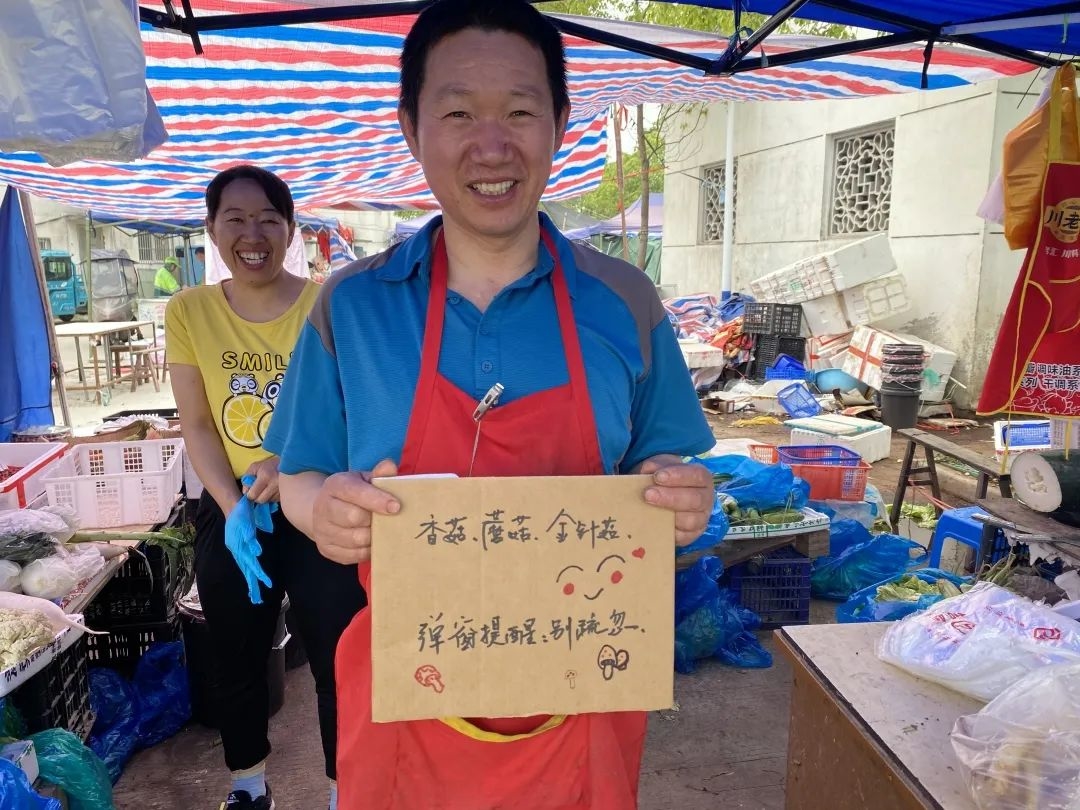 香菇、蘑菇、金针菇、
弹窗提醒:别疏忽.
SMILE
川老
调味油系
系列 干调系